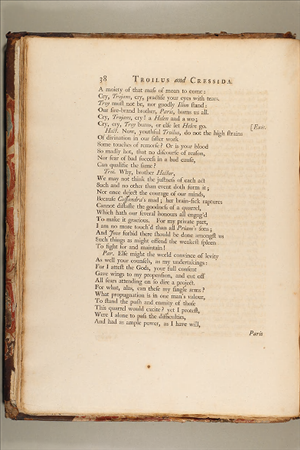 38 TROILUS and CRESSIDA.
A moiety of that mass of moan to come:
Cry, Trojans, cry, practise your eyes with tears.
Troy must not be, nor goodly Ilion stand:
Our fire-brand brother, Paris, burns us all.
Cry, Trojans, cry! a Helen and a wo;
Cry, cry, Troy burns, or else let Helen go. [Exit.
Hect. Now, youthful Troilus, do not the high strains
Of divination in our sister work
Some touches of remorse? Or is your blood
So madly hot, that no discourse of reason,
Nor fear of bad success in a bad cause,
Can qualifie the same?
Troi. Why, brother Hector,
We may not think the justness of each act
Such and no other than event doth form it;
Nor once deject the courage of our minds,
Because Cassandra's mad; her brain-sick raptures
Cannot distaste the goodness of a quarrel,
Which hath our several honours all engag'd
To make it gracious. For my private part,
I am no more touch'd than all Priam's sons;
And Jove forbid there should be done amongst us
Such things as might offend the weakest spleen
To fight for and maintain!
Par. Else might the world convince of levity
As well your counsels, as my undertakings:
For I attest the Gods, your full consent
Gave wings to my propension, and cut off
All fears attending on so dire a project.
For what, alas, can these my single arms?
What propugnation is in one man's valour,
To stand the push and enmity of those
This quarrel would excite? yet I protest,
Were I alone to pass the difficulties,
And had as ample power, as I have will,
Paris